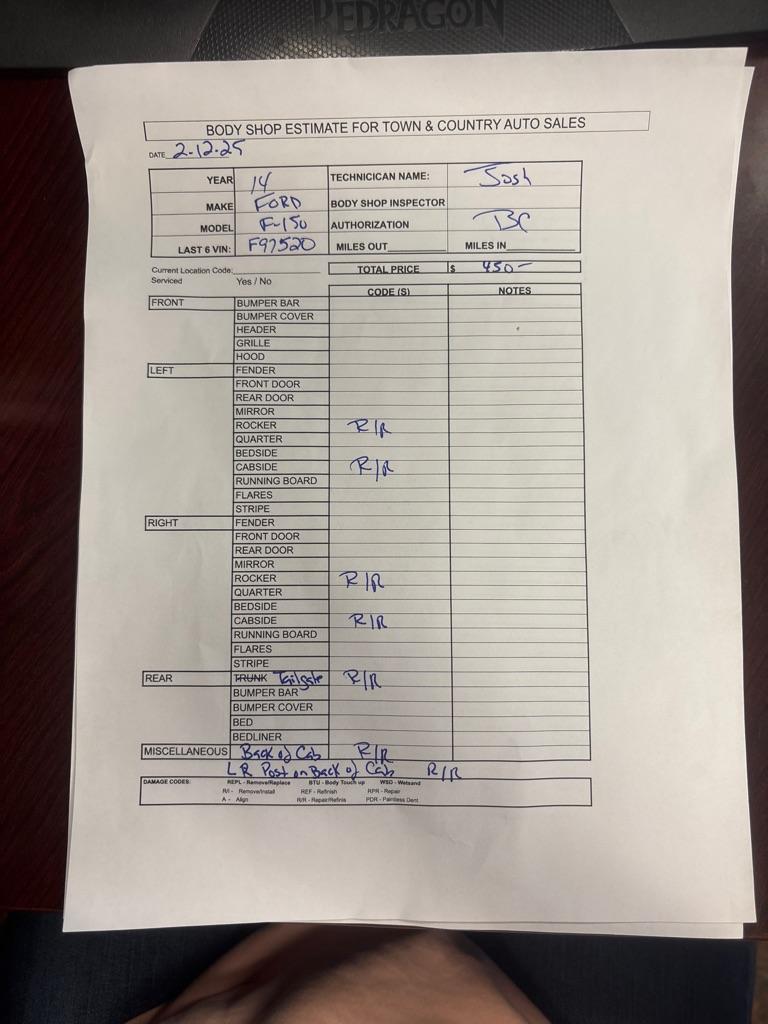 REDRAGON
BODY SHOP ESTIMATE FOR TOWN & COUNTRY AUTO SALES
DATE 2-12-25
YEAR 14 TECHNICICAN NAME: Josh
MAKE FORD BODY SHOP INSPECTOR
MODEL F-150 AUTHORIZATION BC
LAST 6 VIN: F97520 MILES OUT MILES IN
Current Location Code: TOTAL PRICE $ 450-
Serviced Yes / No
CODE (S) NOTES
FRONT BUMPER BAR
BUMPER COVER
HEADER
GRILLE
HOOD
LEFT FENDER
FRONT DOOR
REAR DOOR
MIRROR
ROCKER R/R
QUARTER
BEDSIDE
CABSIDE R/R
RUNNING BOARD
FLARES
STRIPE
RIGHT FENDER
FRONT DOOR
REAR DOOR
MIRROR
ROCKER R/R
QUARTER
BEDSIDE
CABSIDE R/R
RUNNING BOARD
FLARES
STRIPE
REAR TRUNK Tailgate R/R
BUMPER BAR
BUMPER COVER
BED
BEDLINER
MISCELLANEOUS Back of Cab R/R
LR Post on Back of Cab R/R
DAMAGE CODES: REPL - Remove/Replace BTU - Body Touch up WSD - Wetsand
R/I - Remove/Install REF - Refinish RPR - Repair
A - Align R/R - Repair/Refinis PDR - Paintless Dent